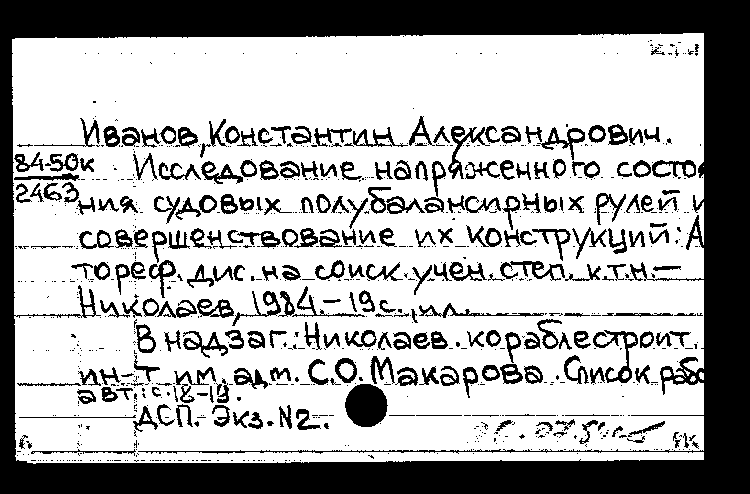 Иванов, Константин Александрович.
84-50к
2463
Исследование напряженного состоя
ния судовых полубалансирных рулей и
совершенствование их конструкций: А
тореф. дис. на соиск. учен. степ. к.т.н.—
Николаев, 1984.– 19с., ил.
В надзаг.: Николаев. кораблестроит.
ин-т им. адм. С.О. Макарова. Список рабо
авт.: с. 18-19.
ДСП. Экз. N2.